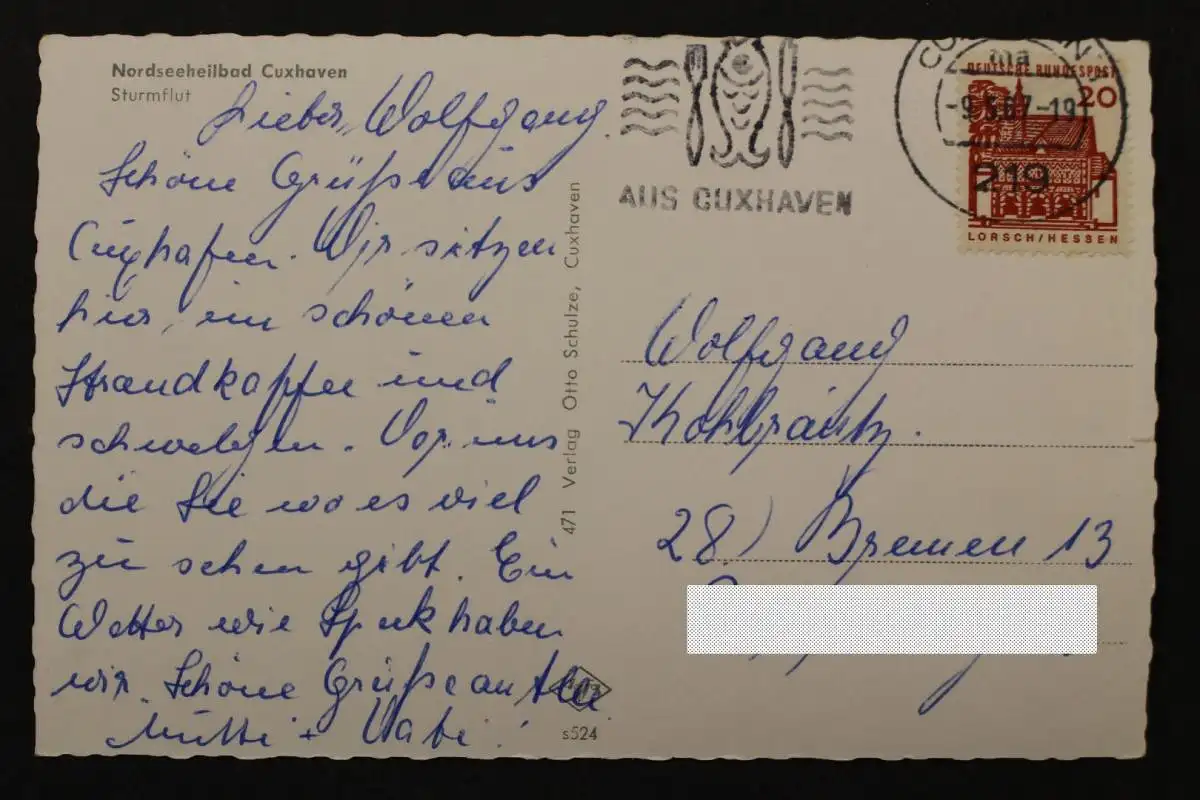 Nordseeheilbad Cuxhaven
Sturmflut
Lieber Wolfgang.
Schöne Grüße aus
Cuxhafen. Wir sitzen
hier, im schönen
Strandkopfer und
schwelgen. Vor uns
die See wo es viel
zu sehen gibt. Ein
Wetter wie Speck haben
wir. Schöne Grüße an Alle
Mutti + Vati!
471 Verlag Otto Schulze, Cuxhaven
s524
AUS CUXHAVEN
-9.5.67-19
219
DEUTSCHE BUNDESPOST
20
LORSCH/HESSEN
Wolfgang
Kohlräutz.
28) Bremen 13